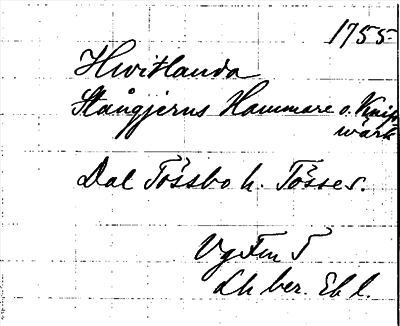 1755
Hvitlanda
Stångjerns Hammare o. Knip-
wärk
Dal Tössbo h. Tösse s.
Vg Fm 5
Lh ber. Eb l.